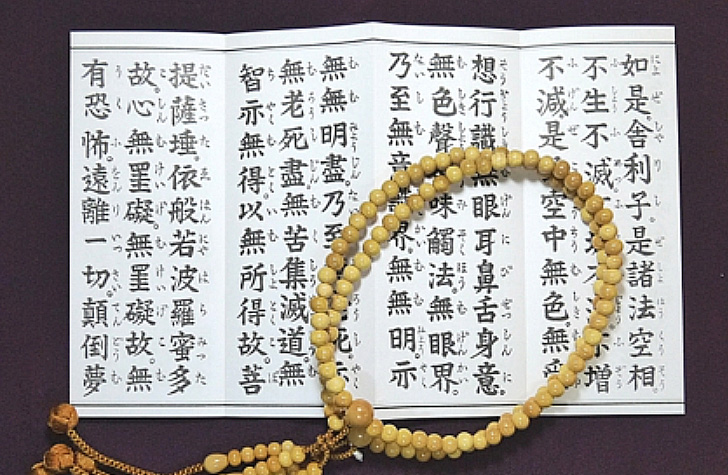 如是舍利子。是諸法空相
不生不滅。不不增
不減。是空中無色。無
想行識無眼耳鼻舌身意。
無色聲味觸法。無眼界。
乃至無意界無無明。亦
無無明盡。乃至死。亦
無老死盡無苦集滅道。無
智亦無得。以無所得故。菩
提薩埵。依般若波羅蜜多
故。心無罣礙。無罣礙故。無
有恐怖。遠離一切。顛倒夢